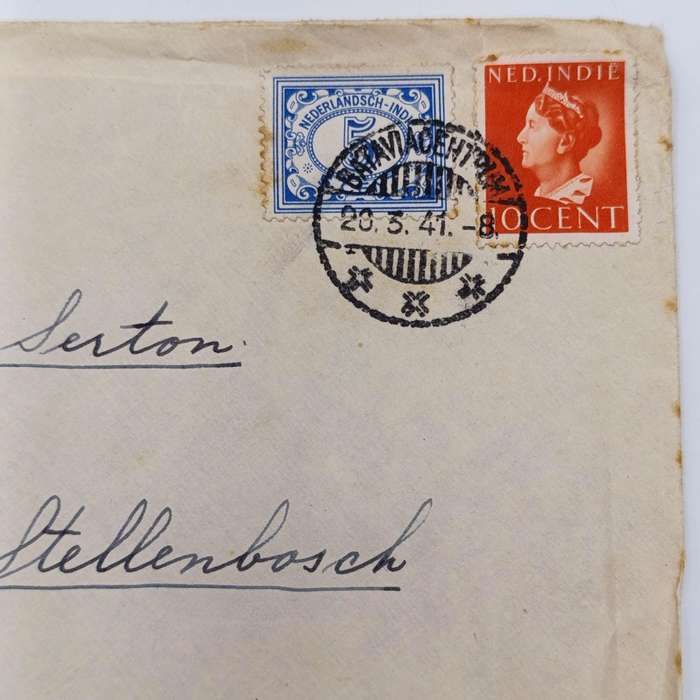 NEDERLANDSCH-INDIË
5
NED. INDIË
10 CENT
BATAVIACENTRUM
20. 3. 41. -8.
Serton.
Stellenbosch